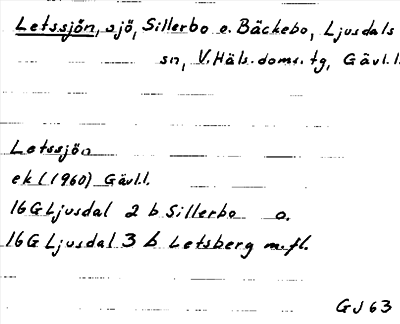 Letssjön, sjö, Sillerbo o. Bäckebo, Ljusdals
sn, V. Häls. doms. tg, Gävl. l.
Letssjön
ek (1960) Gävl. l.
16G Ljusdal 2 b Sillerbo o.
16G Ljusdal 3 b Letsberg m. fl.
GJ 63